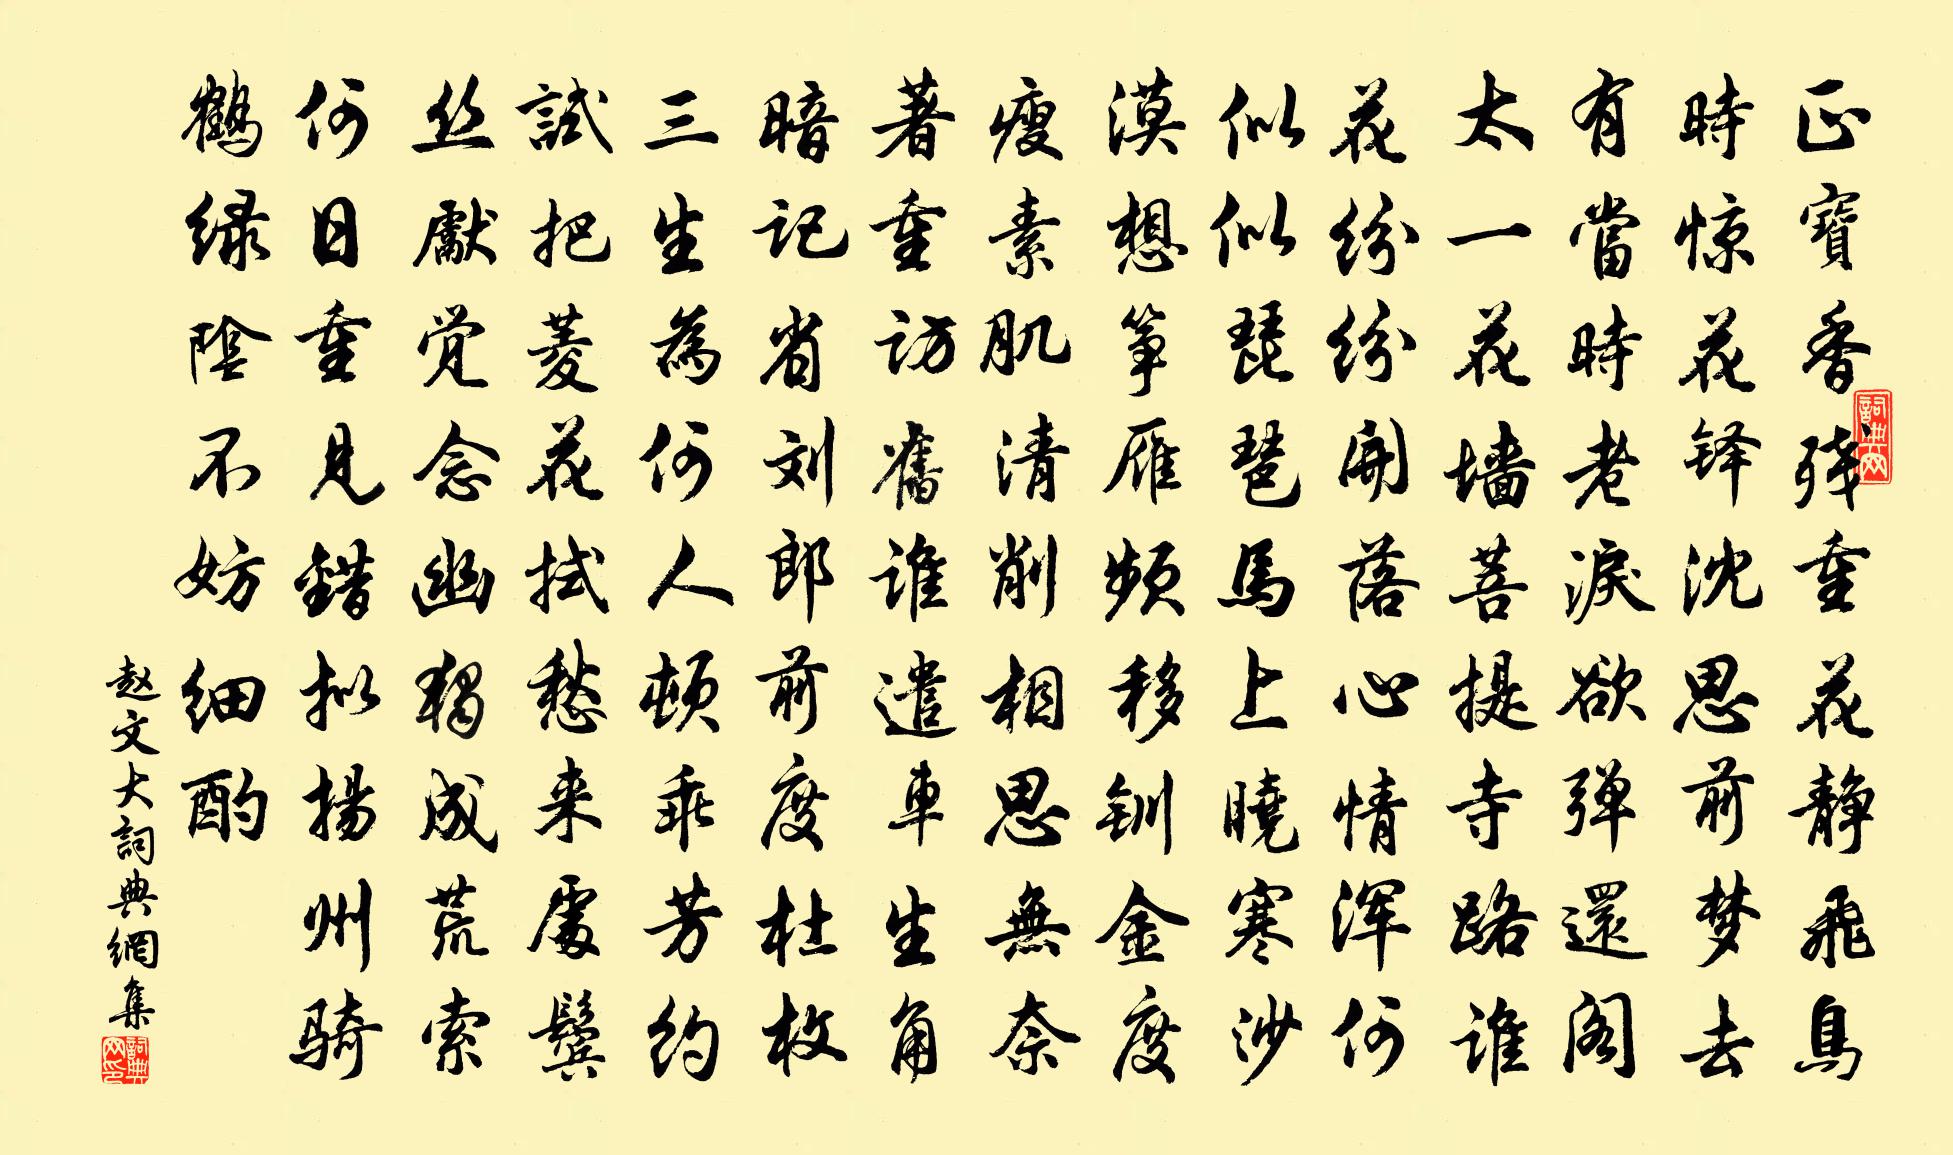 正寶香残重花静飛鳥
時惊花铎沈思前梦去
有當時老淚欲弹還阁
太一花墙菩提寺路谁
花纷纷開落心情浑何
似似琵琶馬上曉寒沙
漠想筝雁頻移钏金度
瘦素肌清削相思無奈
著重访舊谁遣車生角
暗记省刘郎前度杜牧
三生為何人頓乖芳约
試把菱花拭愁来處鬓
丝獻觉念幽獨成荒索
何日重見錯拟揚州骑
鶴绿陰不妨细酌
赵文大詞典網集
詞典网
詞典网印